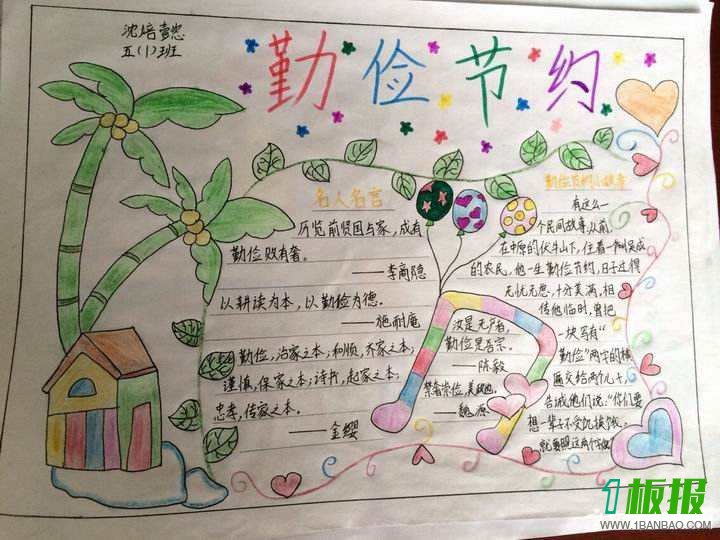 沈焙壹
五(1)班
勤俭节约
名人名言
历览前贤国与家,成有
勤俭败有奢。
——李商隐
以耕读为本,以勤俭为德。
——施耐庵
勤俭,治家之本;和顺,齐家之本;
谨慎,保家之本;诗书,起家之本;
忠孝,传家之本。
——金缨
汝是无产者,
勤俭是吾宗。
——陈毅
禁奢崇俭,美
——魏源
勤俭节约小故事
有这么一
个民间故事,从前,
在中原的伏牛山下,住着一个叫吴成
的农民,他一生勤俭节约,日子过得
无忧无虑,十分美满,相
传他临时,曾把
一块写有“
勤俭”两字的横
匾交给两个儿子,
告诫他们说:“你们要
想一辈子不受饥挨饿,
就要照这两个字做”
1板报
WWW.1BANBAO.COM